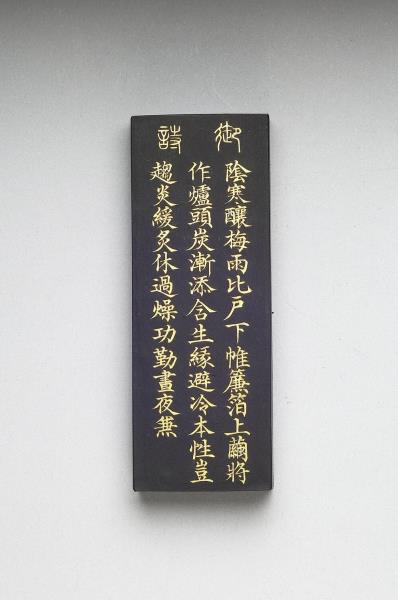 御詩
陰寒釀梅雨比戸下帷簾箔上繭將
作爐頭炭漸添含生緣避冷本性豈
趨炎緩炙休過燥功勤晝夜兼